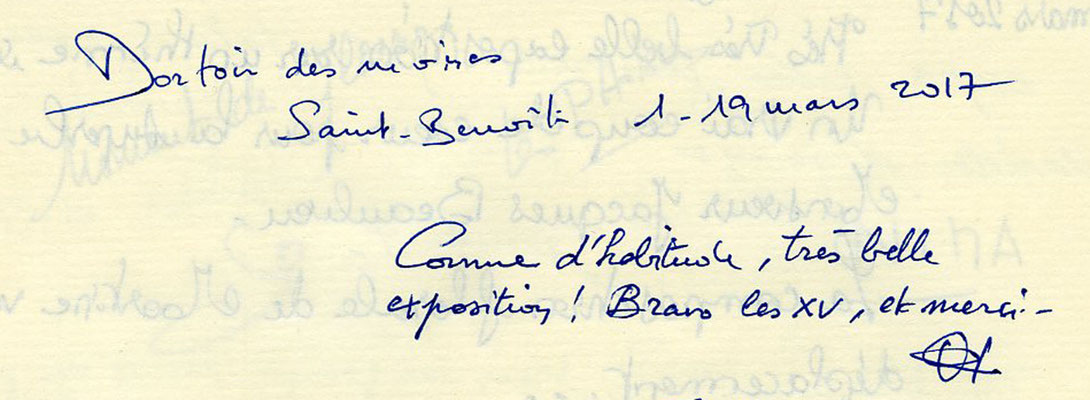 Dortoir des moines
Saint-Benoît 1-19 mars 2017
Comme d'habitude, très belle
exposition! Bravo les XV, et merci.-